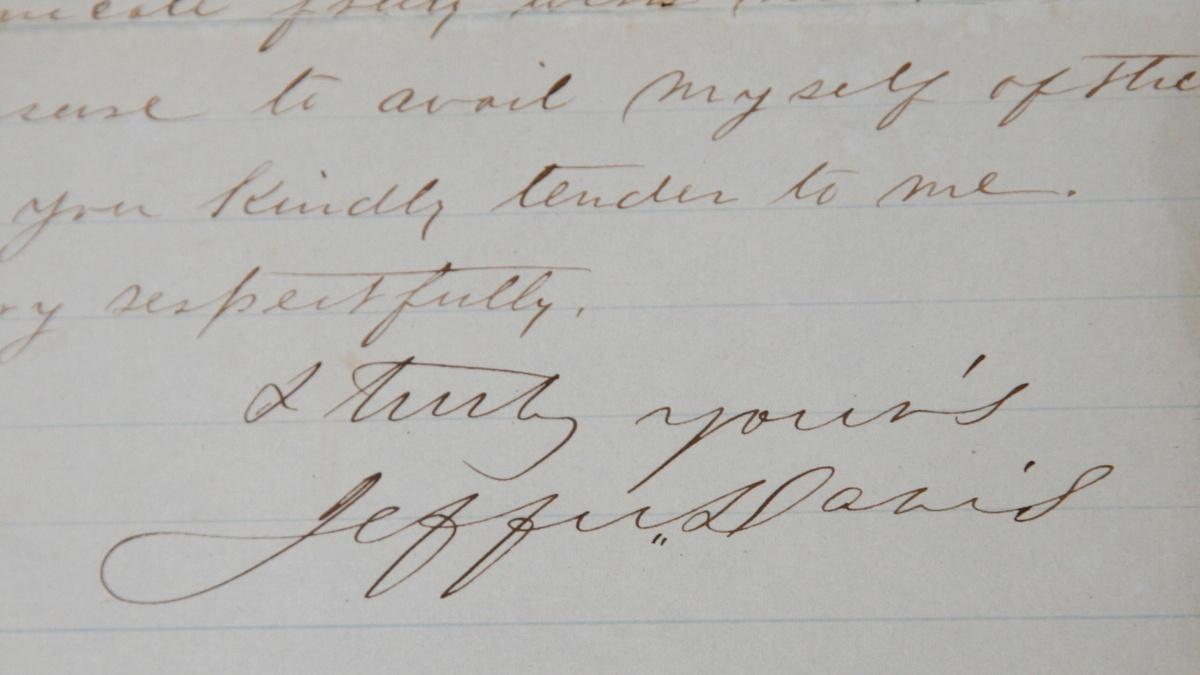 to avail myself of the
you kindly tender to me.
respectfully.
& truly your's
Jeffn Davis